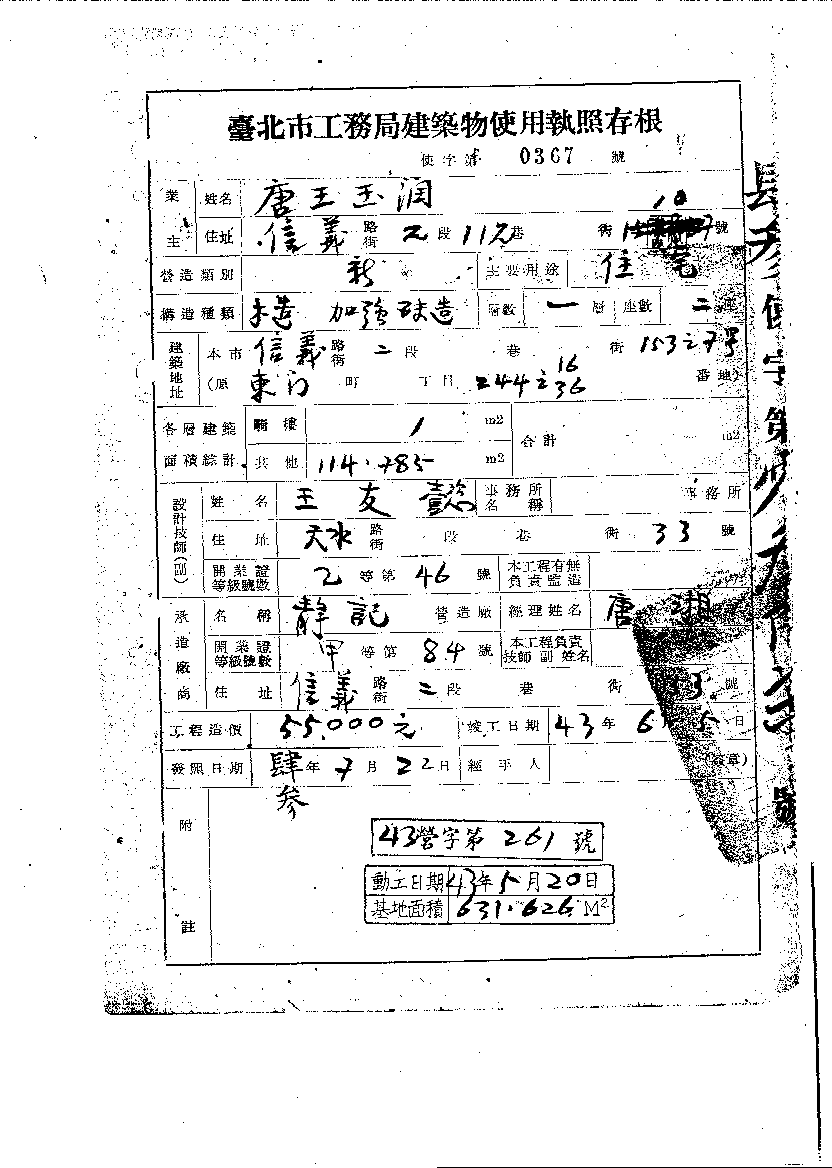 臺北市工務局建築物使用執照存根
使字第 0367 號
業主 姓名 唐王玉润
住址 信義路街二段11元巷 街 10 號
營造類別 新 主要用途 住宅
構造種類 木造 加強磚造 層數 一層 座數 二
建築地址 本市 信義路街二段 巷 街 153之7号
(原 東门 町 丁目 244之16 36 番地)
各層建築面積綜計 騎樓 1 m2 合計 m2
其他 114.785 m2
設計技師(副) 姓名 王友 事務所名稱 事務所
住址 天水路街 段 巷 街 33 號
開業證等級號數 乙等第 46 號 本工程有無負責監造
承造廠商 名稱 靜記 營造廠 經理姓名 唐湘
開業證等級號數 甲等第 84 號 本工程負責技師 副 姓名
住址 信義路街二段 巷 街 號
工程造價 55,000元 竣工日期 43年6月5日
發照日期 肆参年7月22日 經手人 (簽章)
附註
43營字第 261 號
動工日期 43年5月20日
基地面積 631.626 M²